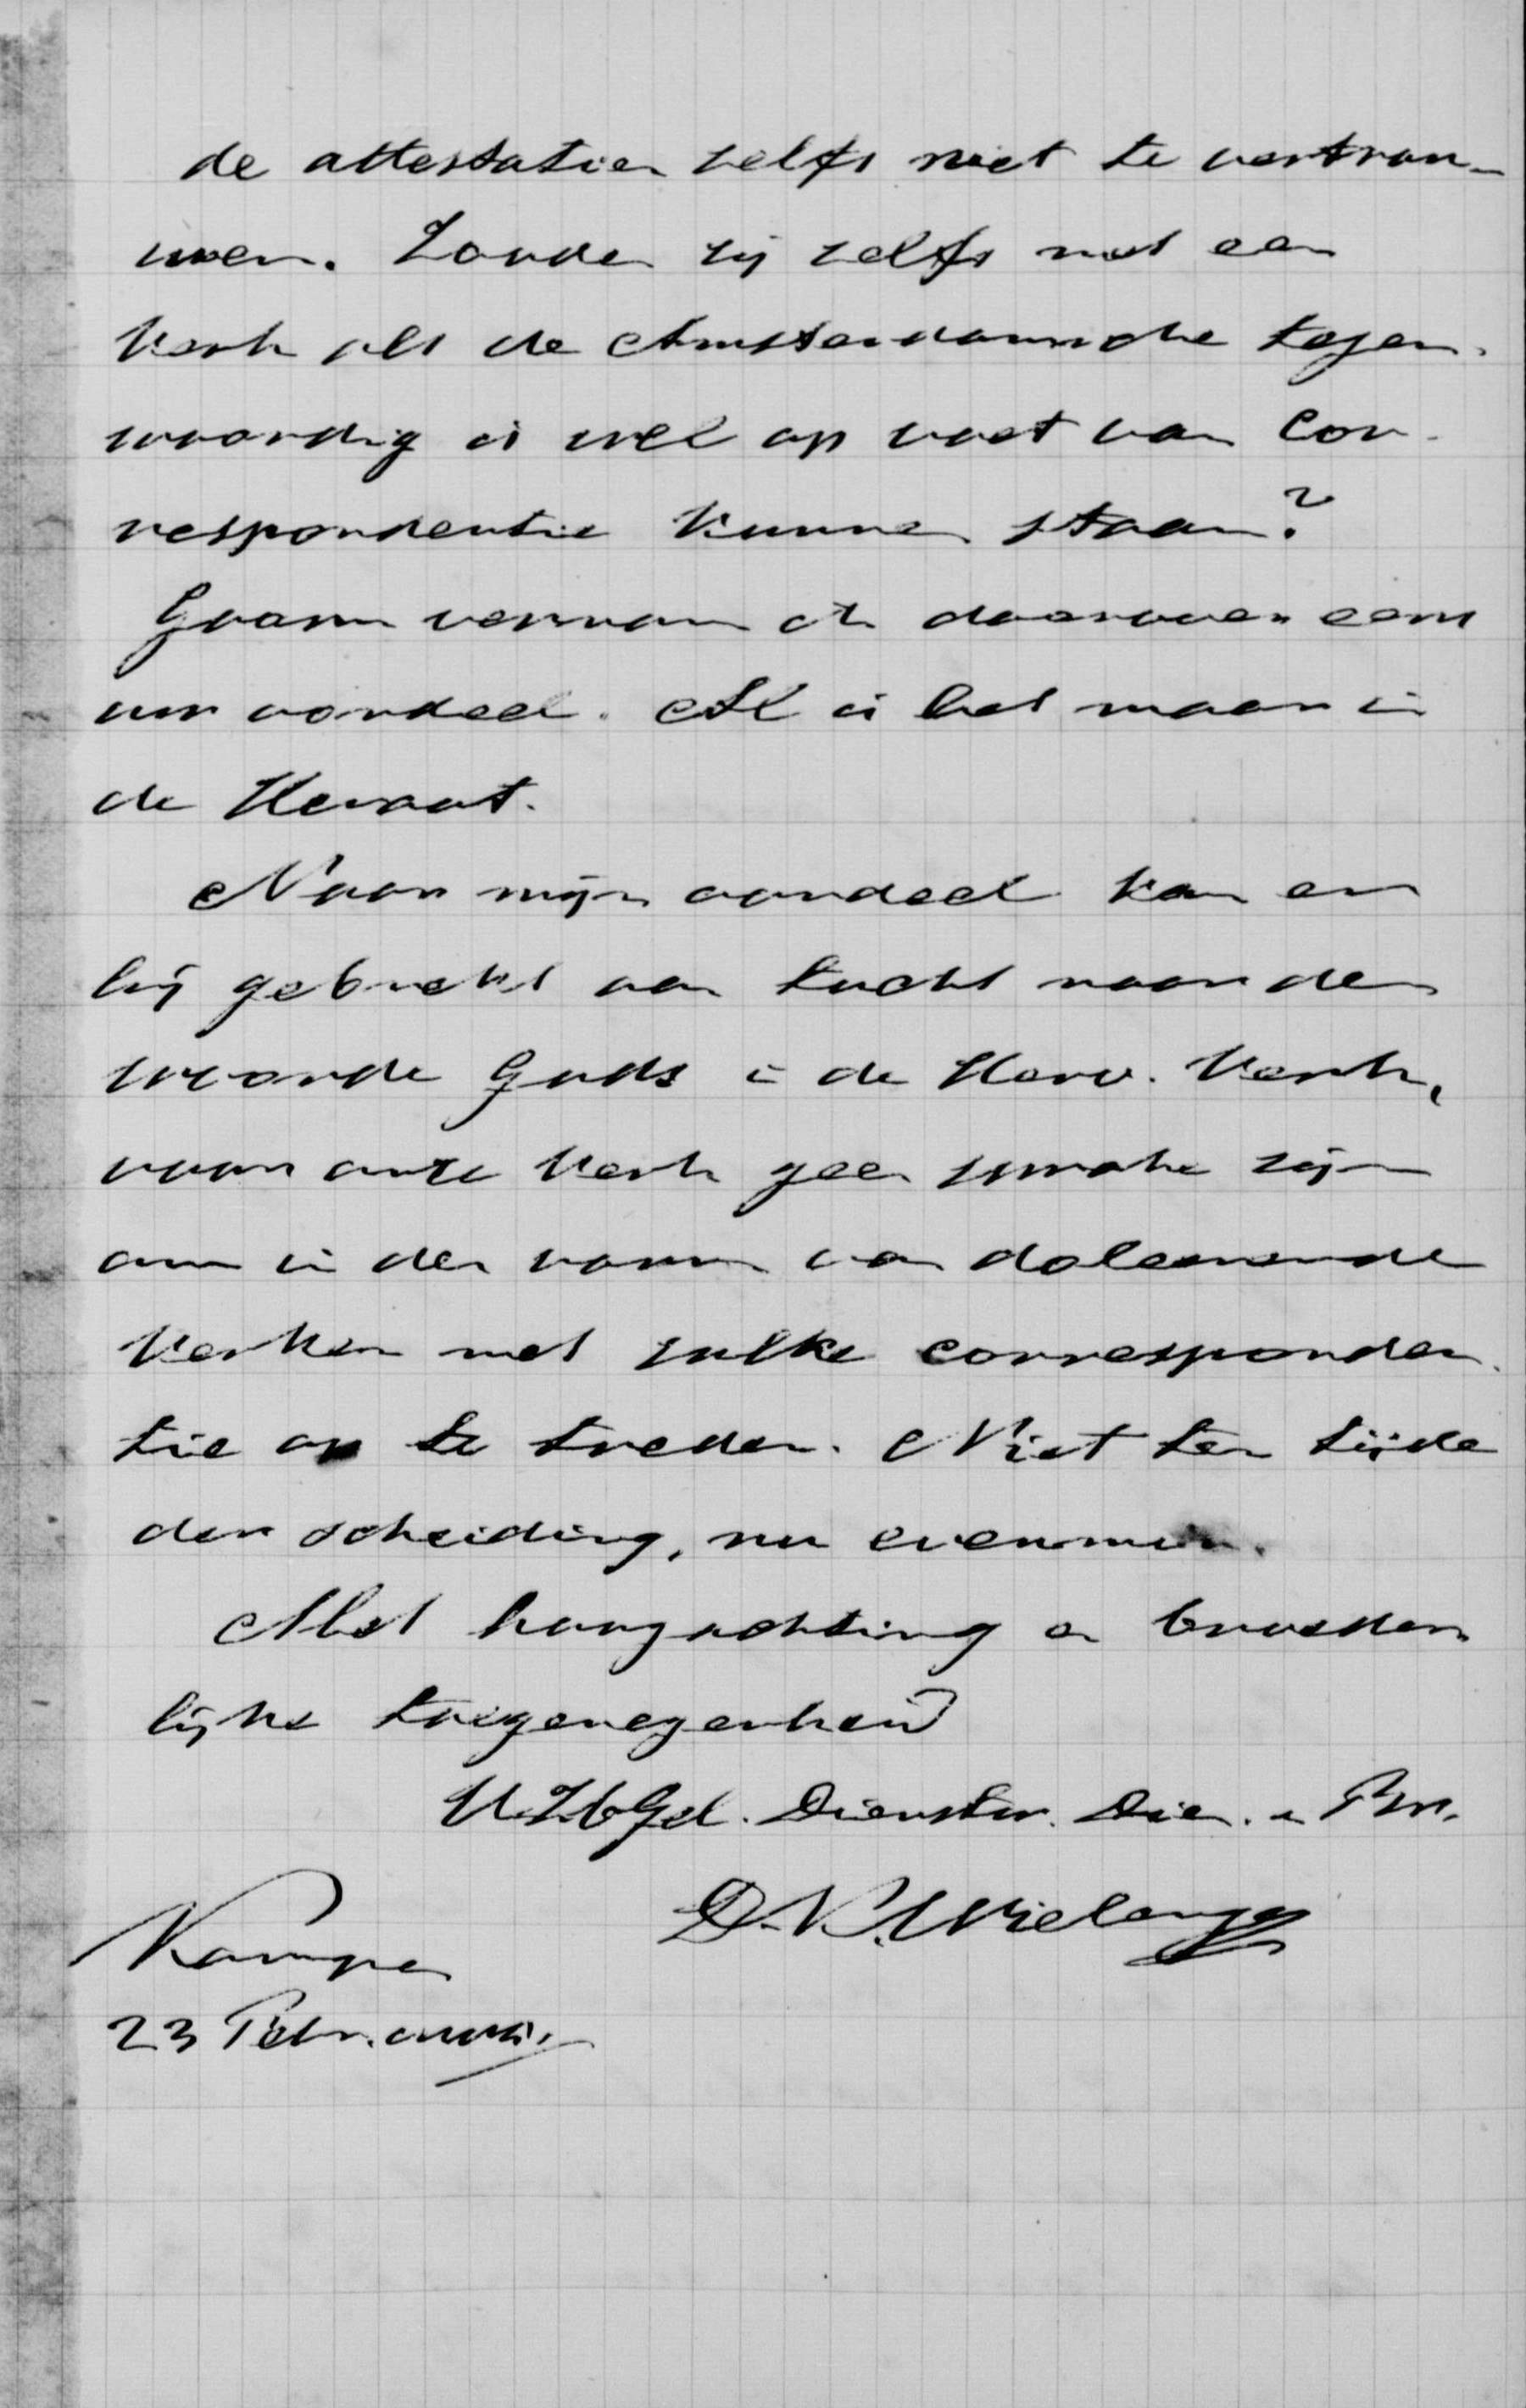 de attestatien zelfs niet te vertrou-
wen. Zouden zij zelfs met een
Kerk als de Amsterdamsche tegen-
woordig is wel op voet van cor-
respondentie kunnen staan?
Gaarne vernam ik daarover eens
uw oordeel. Al is het maar in
de Heraut.
Naar mijn oordeel kan er
bij gebrek aan tucht naar den
woorde Gods in de Herv. Kerk,
voor onze Kerk geen sprake zijn
om in den vorm van doleerende
Kerken met zulke corresponden-
tie op te treden. Niet ten tijde
der scheiding, nu evenmin.
Met hoogachting en broeder-
lijke toegenegenheid
UHGel. Dienstw. Die. en Br.
D.K. Wielenga
Kampen
23 Februari.